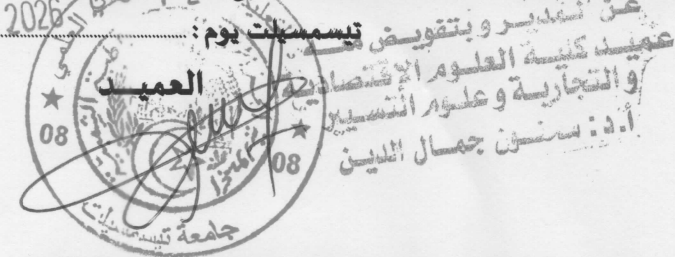 2026
تيسمسيلت يوم :
العميــد
عن المديـر و بتفويـض منــه
عميـد كليـة العلـوم الإقتصاديـة
و التجاريـة و علـوم التسيير
أ.د : سـنـون جمـال الديـن
العلمي
08
08
جامعة تيسمسيلت